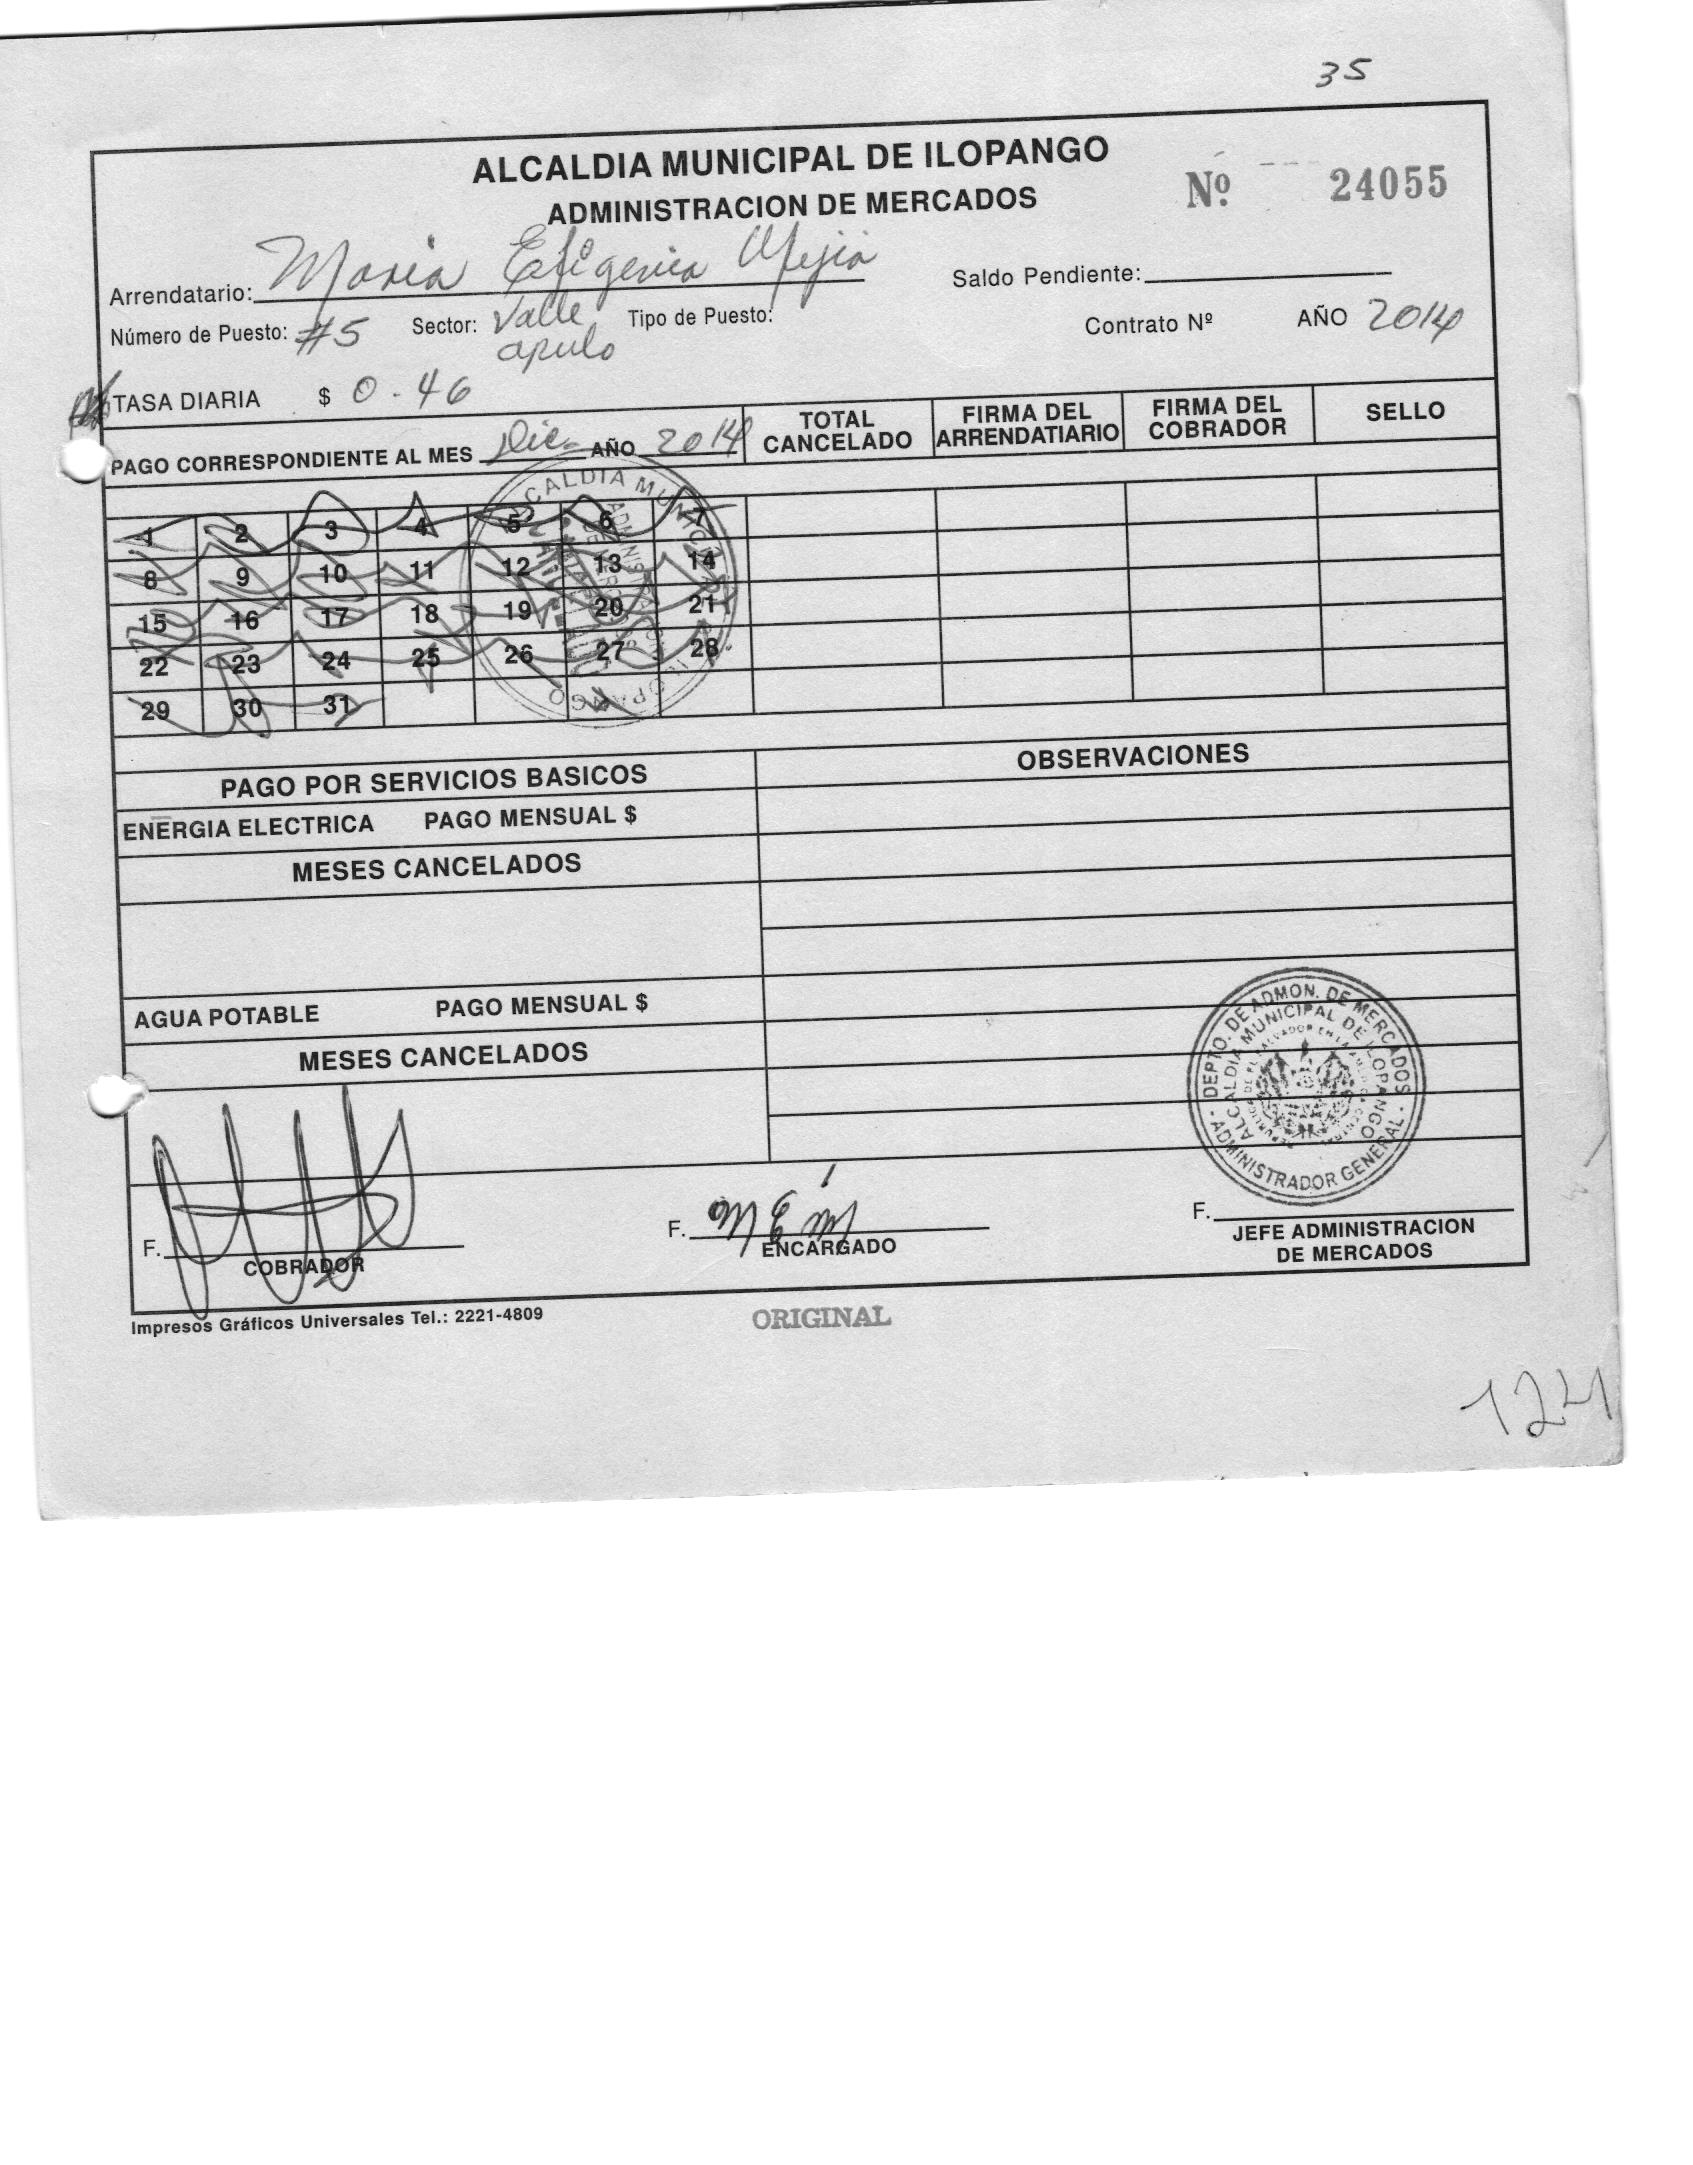 35
ALCALDIA MUNICIPAL DE ILOPANGO
ADMINISTRACION DE MERCADOS
Nº 24055
Arrendatario: Maria Efigenia Mejia
Saldo Pendiente:
Número de Puesto: #5 Sector: Valle apulo Tipo de Puesto:
Contrato Nº AÑO 2014
TASA DIARIA $ 0.46
PAGO CORRESPONDIENTE AL MES Dic. AÑO 2014
TOTAL CANCELADO
FIRMA DEL ARRENDATIARIO
FIRMA DEL COBRADOR
SELLO
1 2 3 4 5 6 7
8 9 10 11 12 13 14
15 16 17 18 19 20 21
22 23 24 25 26 27 28
29 30 31
PAGO POR SERVICIOS BASICOS
OBSERVACIONES
ENERGIA ELECTRICA PAGO MENSUAL $
MESES CANCELADOS
AGUA POTABLE PAGO MENSUAL $
MESES CANCELADOS
DEPTO. DE ADMON. DE MERCADOS
ALCALDIA MUNICIPAL DE ILOPANGO
ADMINISTRADOR GENERAL
F.
COBRADOR
F. M E M
ENCARGADO
F.
JEFE ADMINISTRACION
DE MERCADOS
Impresos Gráficos Universales Tel.: 2221-4809
ORIGINAL